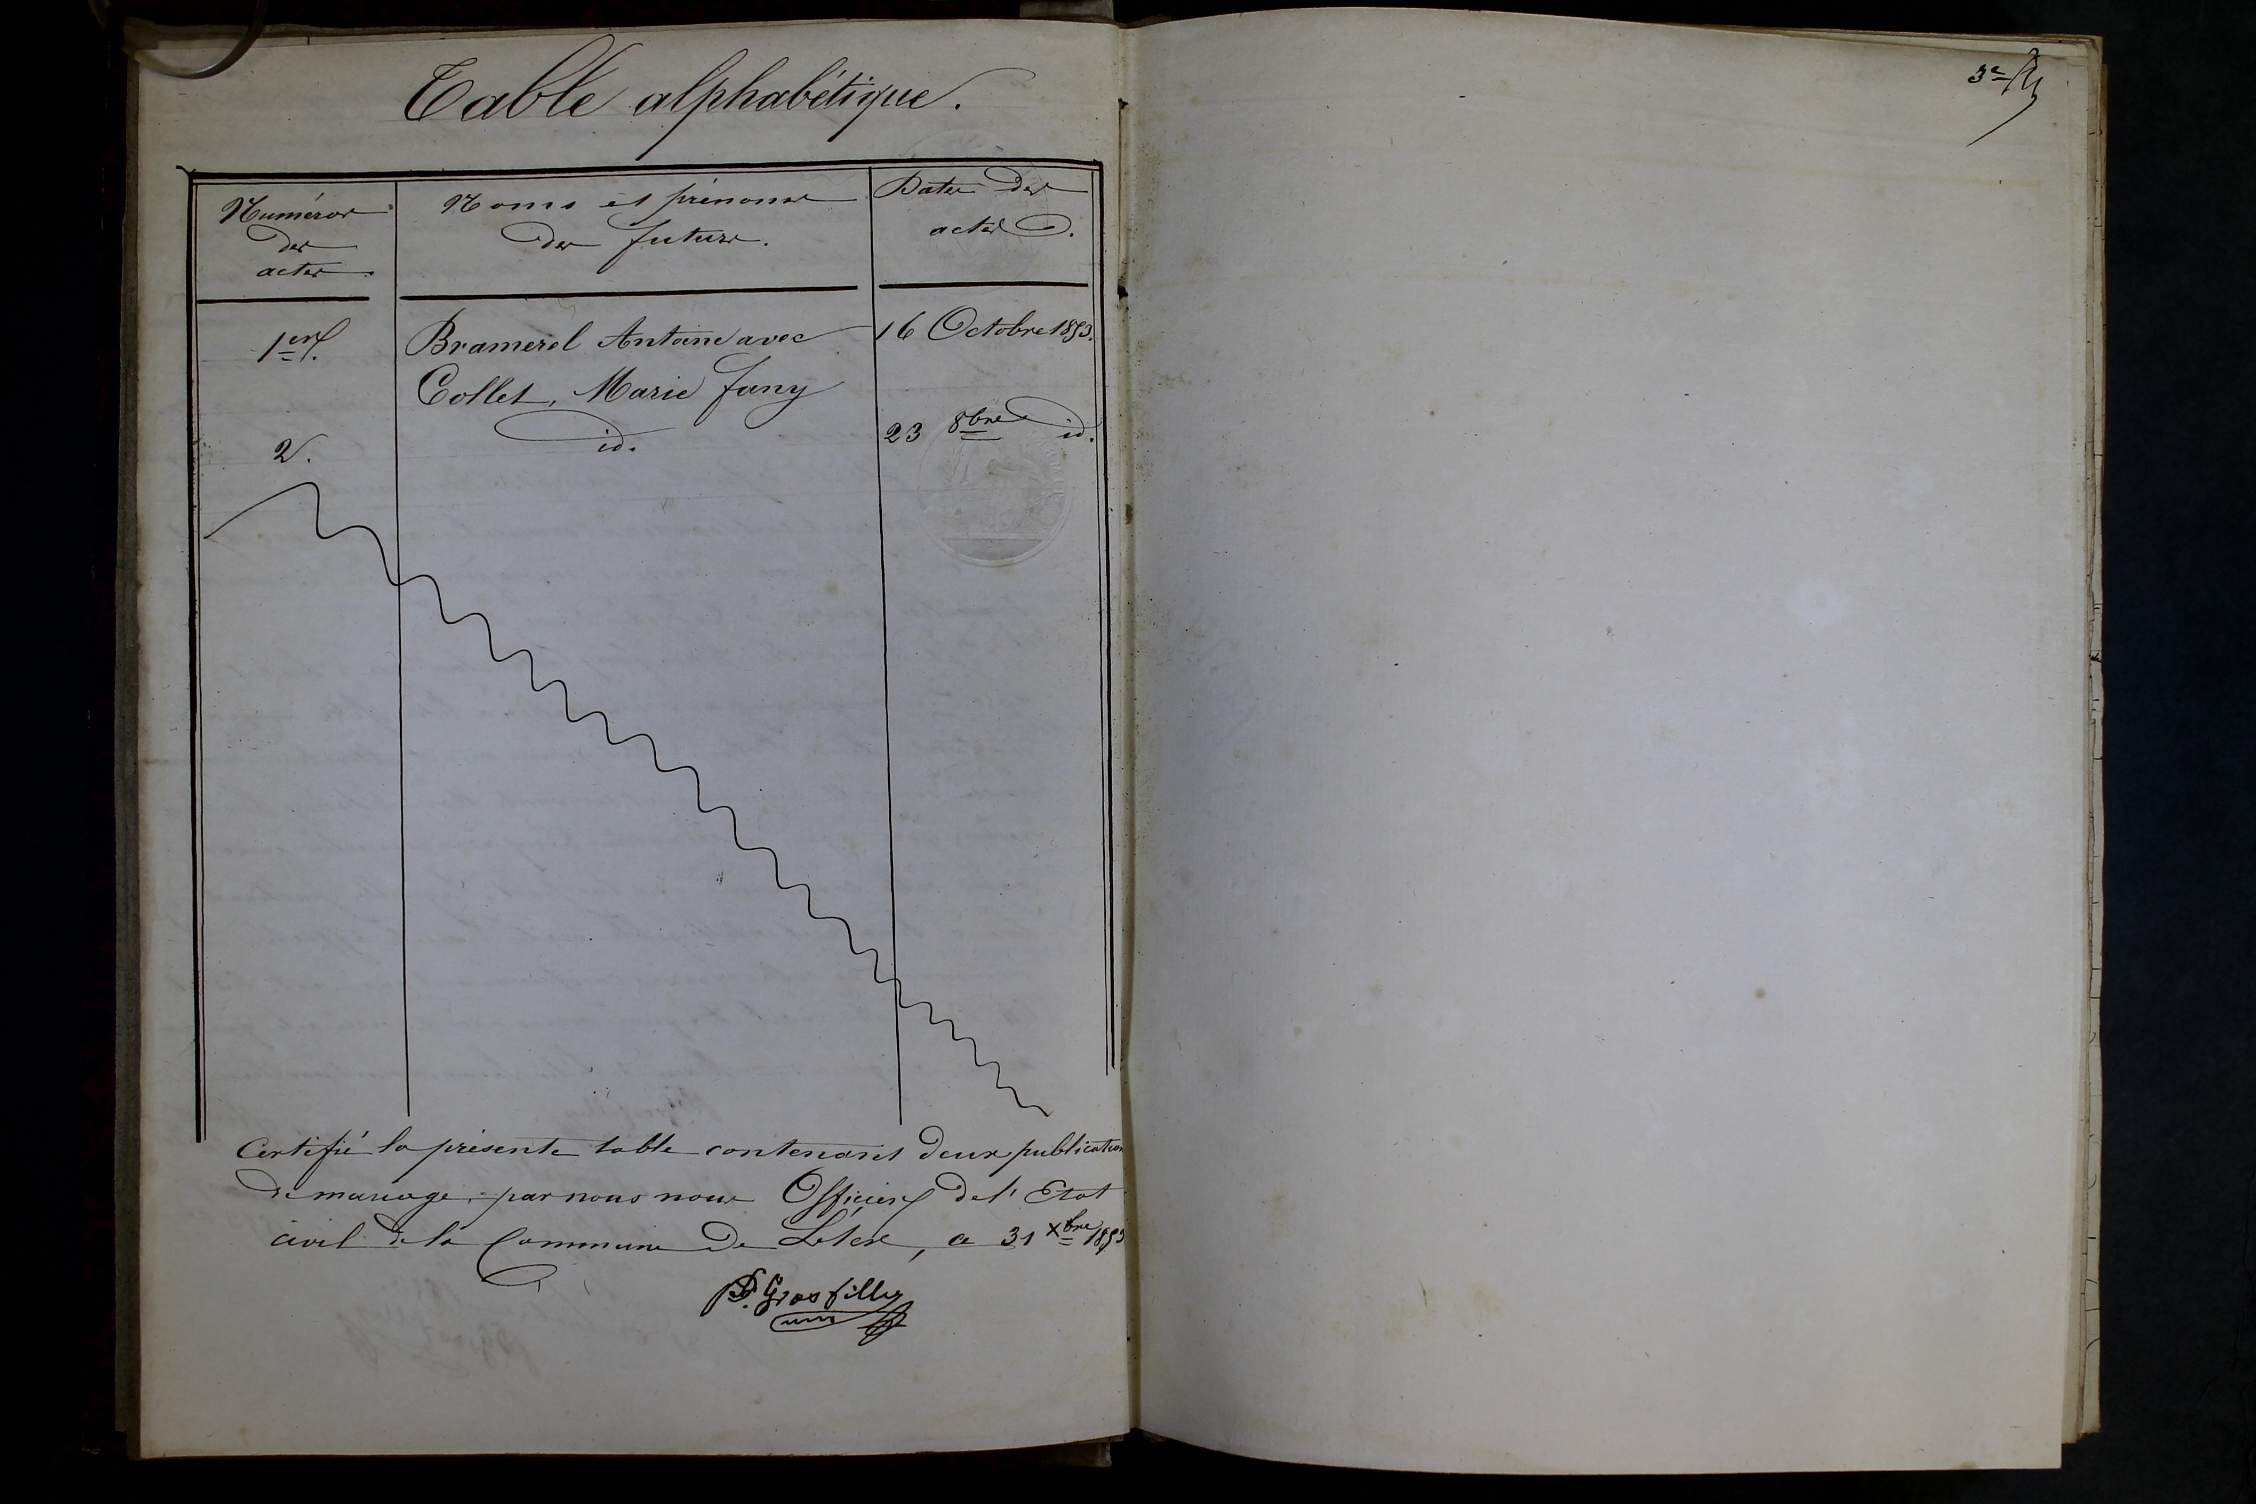 Table alphabétique.
Numéros des actes.
Noms et prénoms des futurs.
Dates des actes.
1er.
Bramerel Antoine avec
16 Octobre 1853.
Collet, Marie fany
2.
id.
23 8bre id.
Certifié la présente table contenant deux publication
de mariage, par nous nous Officier de l'Etat
civil de la Commune de, a 31 Xbre 1853
Grosfilley
3e